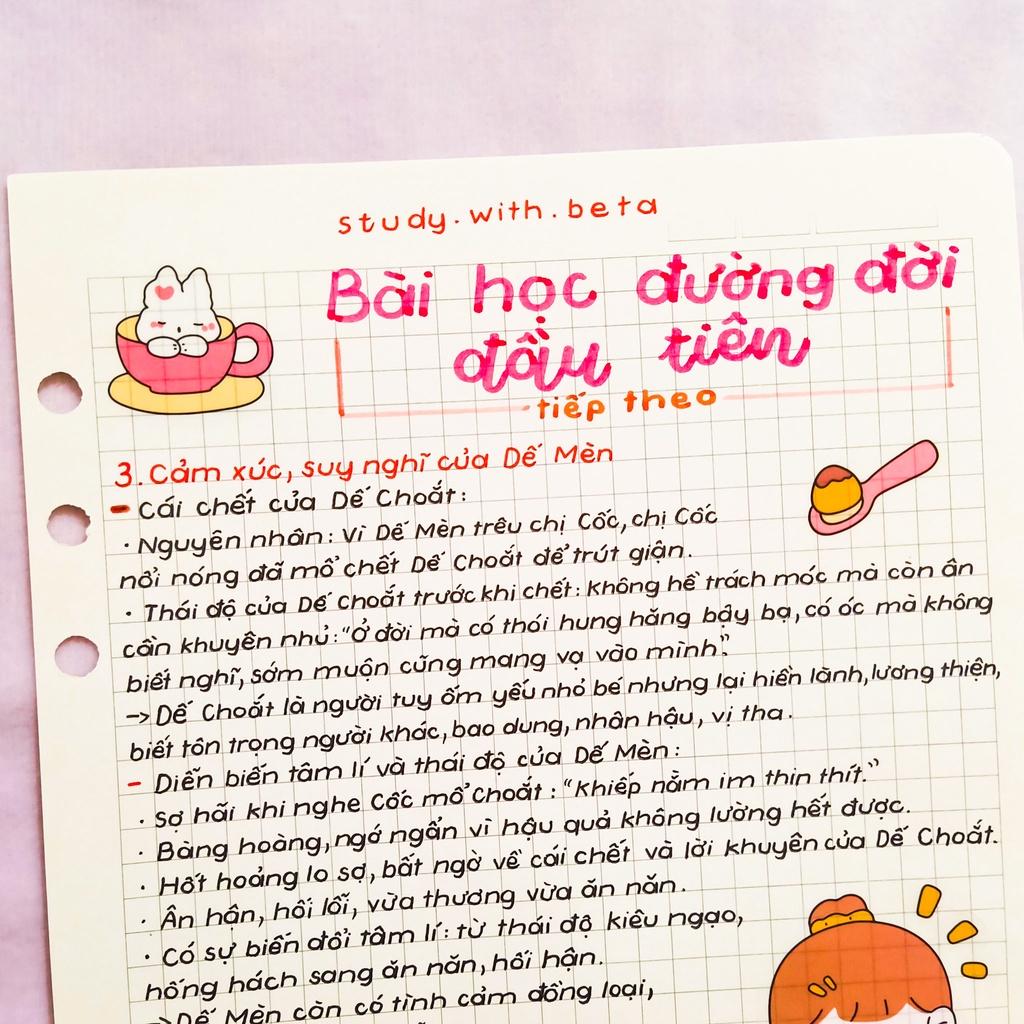 study.with.beta
Bài học đường đời
đầu tiên
tiếp theo
3. Cảm xúc, suy nghĩ của Dế Mèn
- Cái chết của Dế Choắt:
· Nguyên nhân: Vì Dế Mèn trêu chị Cốc, chị Cốc
nổi nóng đã mổ chết Dế Choắt để trút giận.
· Thái độ của Dế Choắt trước khi chết: không hề trách móc mà còn ân
cần khuyên nhủ: "Ở đời mà có thói hung hăng bậy bạ, có óc mà không
biết nghĩ, sớm muộn cũng mang vạ vào mình."
-> Dế Choắt là người tuy ốm yếu nhỏ bé nhưng lại hiền lành, lương thiện,
biết tôn trọng người khác, bao dung, nhân hậu, vị tha.
- Diễn biến tâm lí và thái độ của Dế Mèn:
· Sợ hãi khi nghe Cốc mổ Choắt: "Khiếp nằm im thin thít."
· Bàng hoàng, ngớ ngẩn vì hậu quả không lường hết được.
· Hốt hoảng lo sợ, bất ngờ về cái chết và lời khuyên của Dế Choắt.
· Ân hận, hối lỗi, vừa thương vừa ăn năn.
· Có sự biến đổi tâm lí: từ thái độ kiêu ngạo,
hống hách sang ăn năn, hối hận.
-> Dế Mèn còn có tình cảm đồng loại,